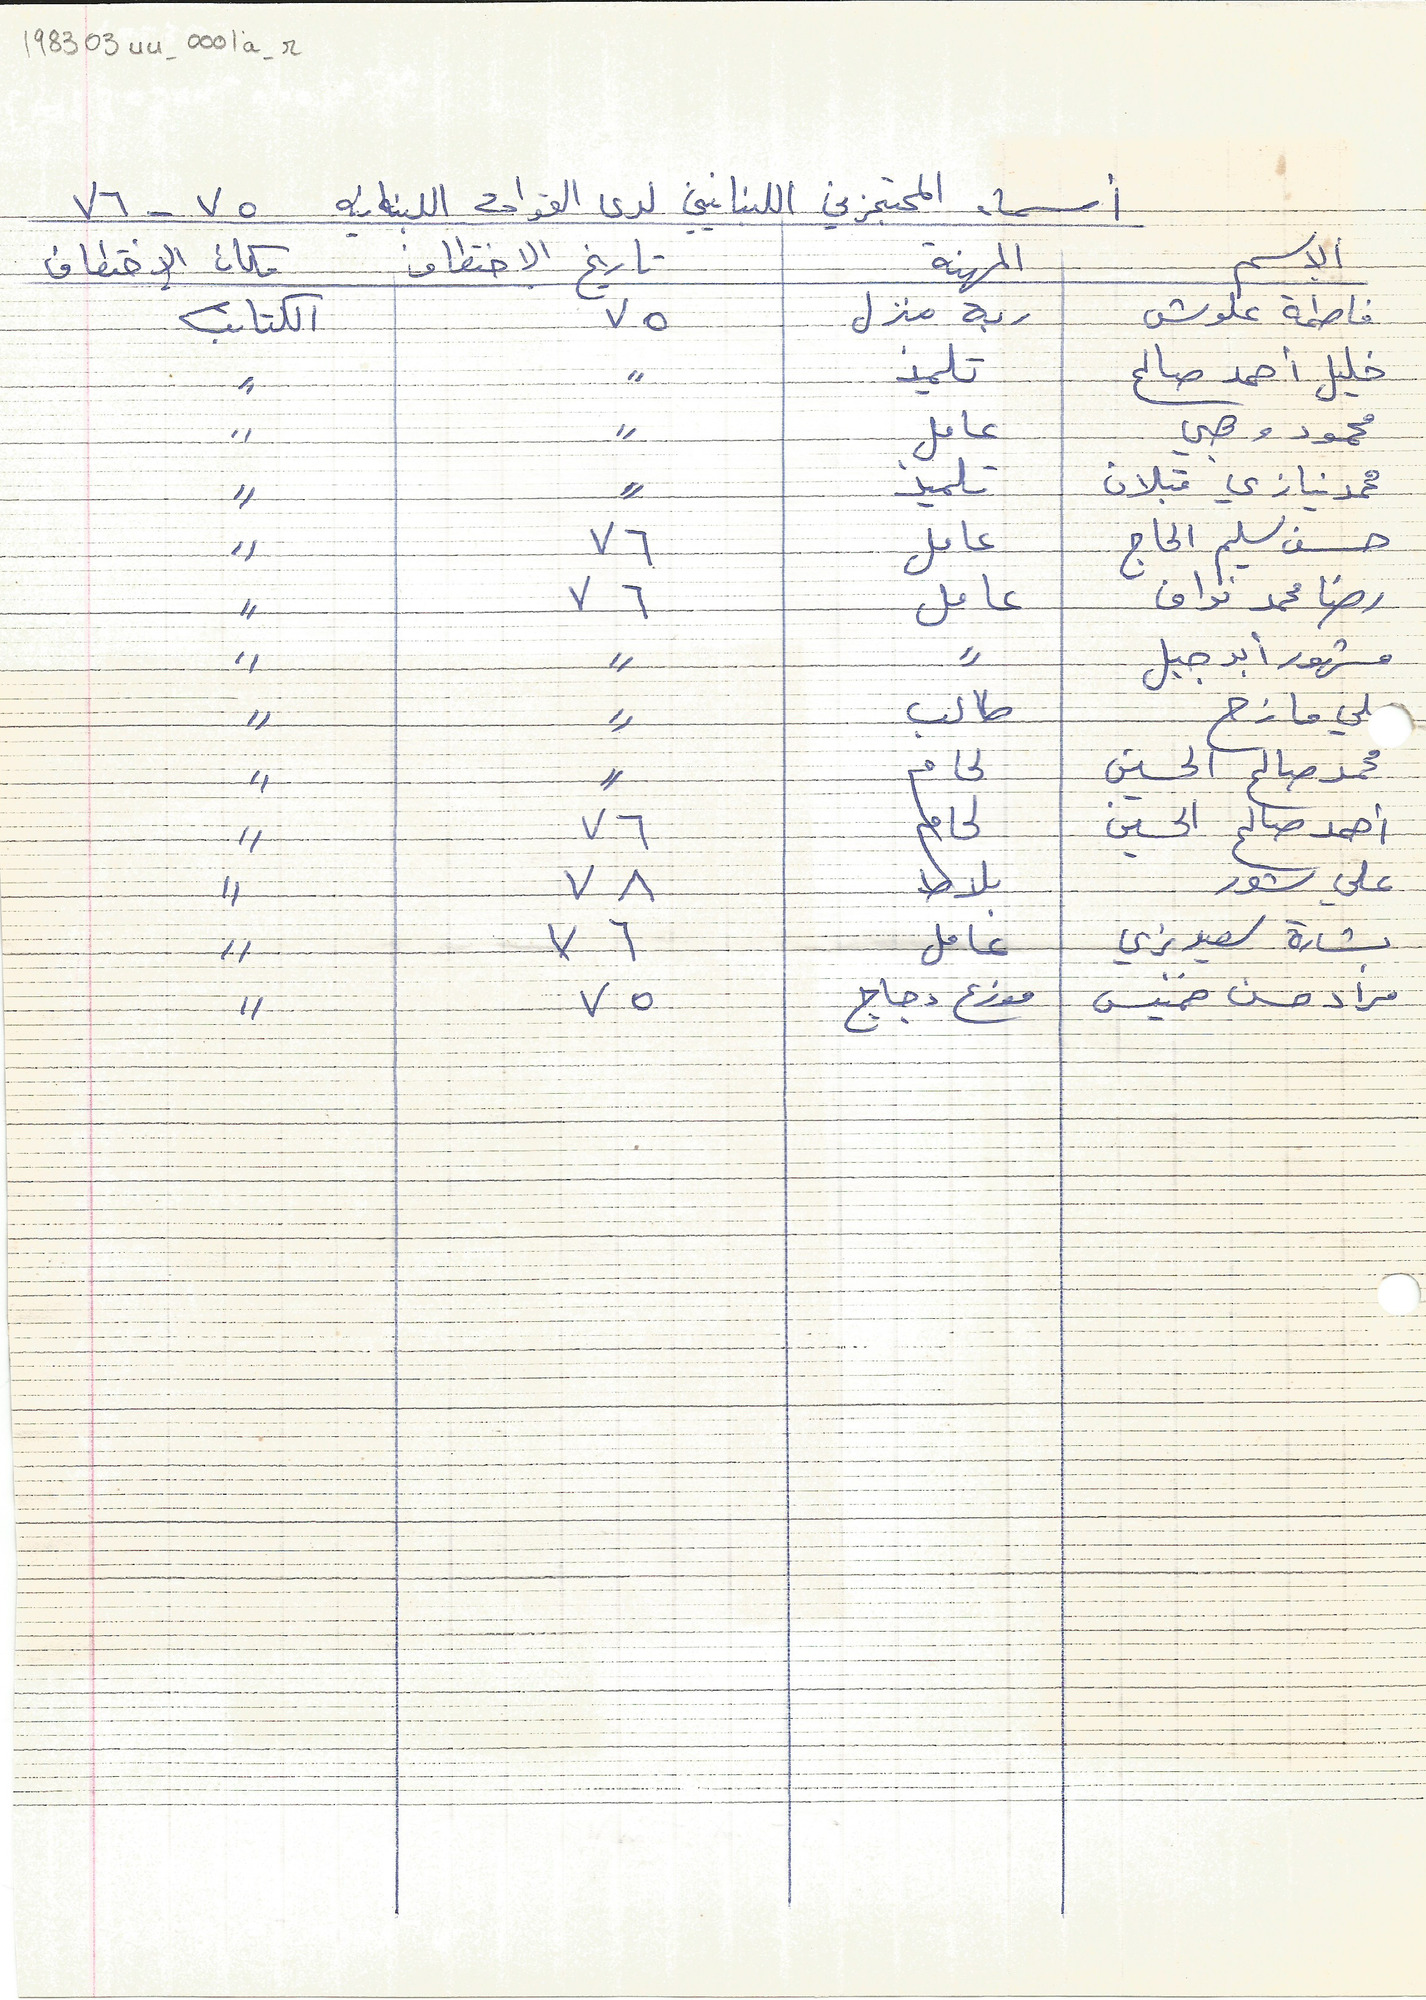 198303uu_0001a_r
أسماء المحتجزين اللبنانيين لدى القوات اللبنانية ٧٥ - ٧٦
الإسم المهنة تاريخ الاختطاف مكان الإختطاف
فاطمة علوش ربة منزل ٧٥ الكتائب
خليل أحمد صالح تلميذ " "
محمود وهبي عامل " "
محمد نيازي قبلان تلميذ " "
حسن سليم الحاج عامل ٧٦ "
رضا محمد نواف عامل ٧٦ "
مشهور أبو جبل " " "
علي مازح طالب " "
محمد صالح الحسين لحام " "
أحمد صالح الحسين لحام ٧٦ "
علي شور بلاط ٧٨ "
بشارة سعيد بزي عامل ٧٦ "
حسن موزع دجاج ٧٥ "